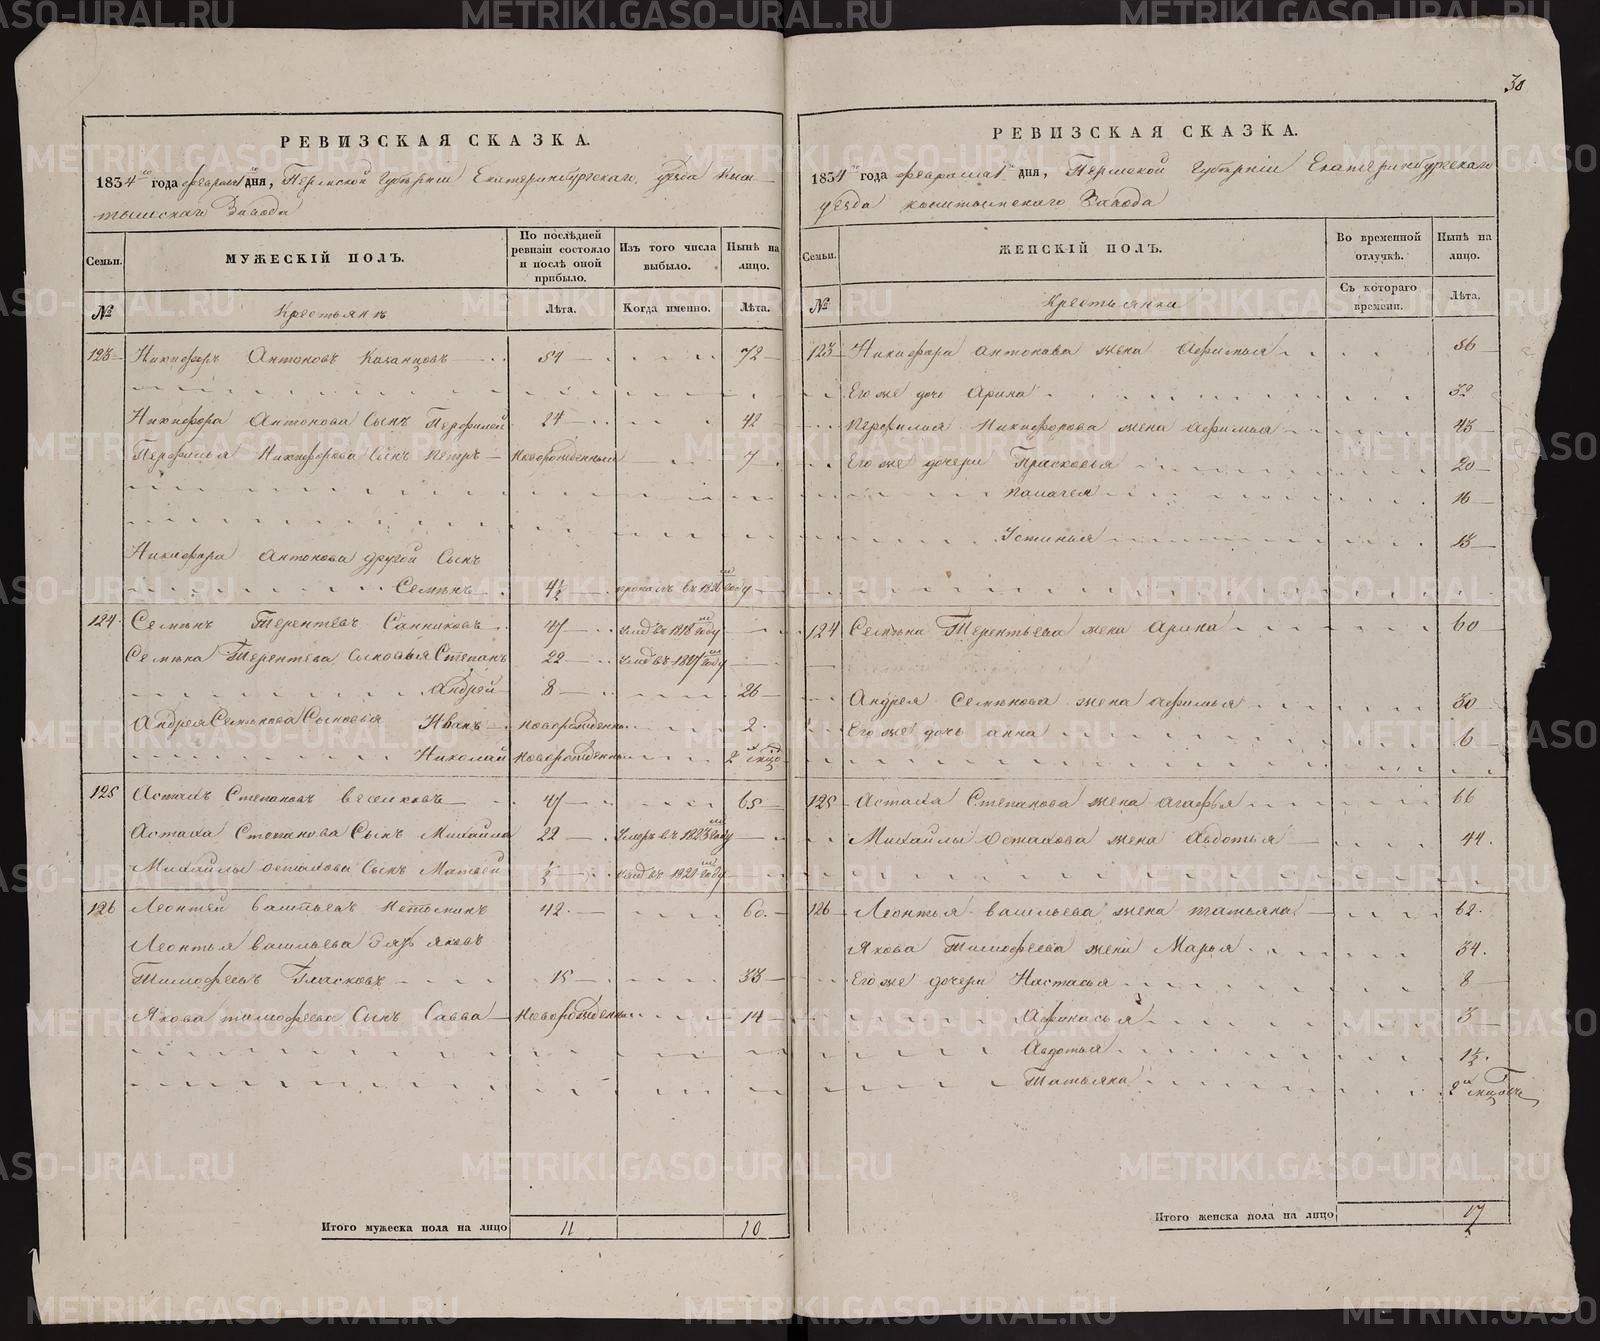 30
РЕВИЗСКАЯ СКАЗКА.
1834го года февраля 1 дня, Пермской Губернiи Екатеринбургскаго уезда Кыш-
тымскаго Завода
Семьи.
МУЖЕСКIЙ ПОЛЪ.
По послѣдней ревизiи состояло и послѣ оной прибыло.
Изъ того числа выбыло.
Нынѣ на лицо.
№
Крестьянъ
Лѣта.
Когда именно.
Лѣта.
123 Никифоръ Антоновъ Казанцовъ 72
Никифора Антонова Сынъ Перфилей 24 42
Перфилья Никифорова Сынъ Петръ Новорожденный 7
Никифора Антонова другой Сынъ
Семенъ 4½
124 Семенъ Терентьевъ Санниковъ 47
Семена Терентева Сыновья Степанъ 22
Андрей 8 26
Андрея Семенова Сыновья Иванъ новорожденны 2
Николай новорожденны
125 Астахъ Степановъ 47 65
Астаха Степанова Сынъ Михайла 22 Умеръ въ 1823 году
Михайлы Остахова Сынъ Матвей ½
126 Леонтей Васильевъ 42 60
Леонтья Васильева Зять Яковъ
Тимофеевъ Гласковъ 15 33
Якова Тимофеева Сынъ Савва Новорожденны 14
Итого мужеска пола на лицо 11 10
РЕВИЗСКАЯ СКАЗКА.
1834го года февраля 1 дня, Пермской Губернiи Екатеринбургскаго
уезда Кыштымскаго Завода
Семьи.
ЖЕНСКIЙ ПОЛЪ.
Во временной отлучкѣ.
Нынѣ на лицо.
№
Крестьянка
Съ котораго времени.
Лѣта.
123 Никифора Антонова жена Афимья
Его же дочь Арина 32
Перфилья Никифорова жена Афимья 43
Его же дочери Прасковья 20
Палагея 16
Устинья 13
124 Семена Терентьева жена Арина 60
Андрея Семенова жена Афимья 30
Его же дочь Анна 6
125 Астаха Степанова жена Агафья 66
Михайлы Остахова жена Авдотья 44
126 Леонтья Васильева жена Татьяна 62
Якова Тимофеева жена Марья 34
Его же дочери Настасья 8
Афонасья 3
Авдотья 1½
Татьяна
Итого женска пола на лицо 17
METRIKI.GASO-URAL.RU